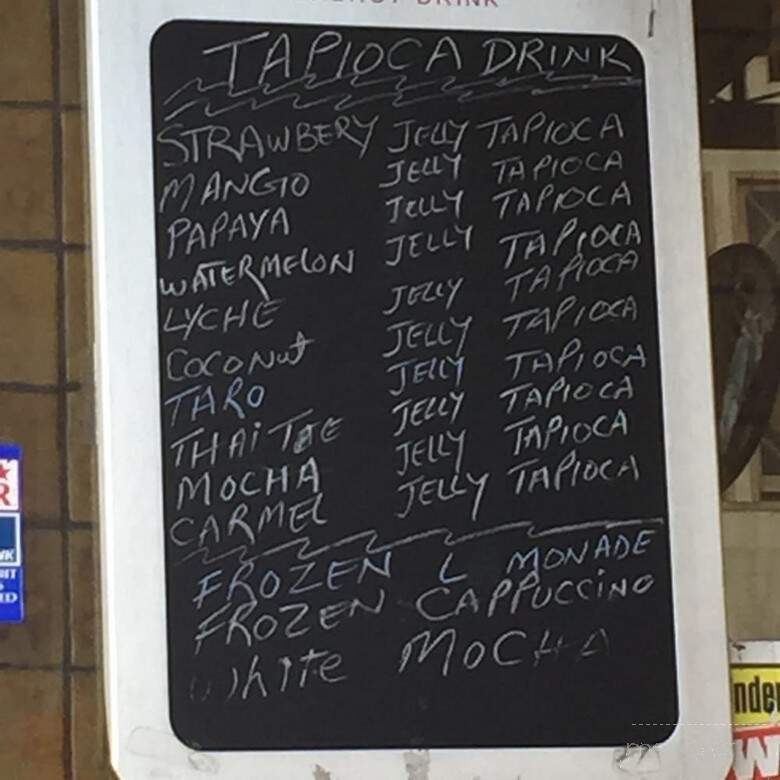 DRINK
TAPIOCA DRINK
STRAWBERY JELLY TAPIOCA
MANGO JELLY TAPIOCA
PAPAYA JELLY TAPIOCA
WATERMELON JELLY TAPIOCA
LYCHE JELLY TAPIOCA
COCONUT JELLY TAPIOCA
TARO JELLY TAPIOCA
THAI TAE JELLY TAPIOCA
MOCHA JELLY TAPIOCA
CARMEL JELLY TAPIOCA
FROZEN L MONADE
FROZEN CAPPUCCINO
White MOCHA